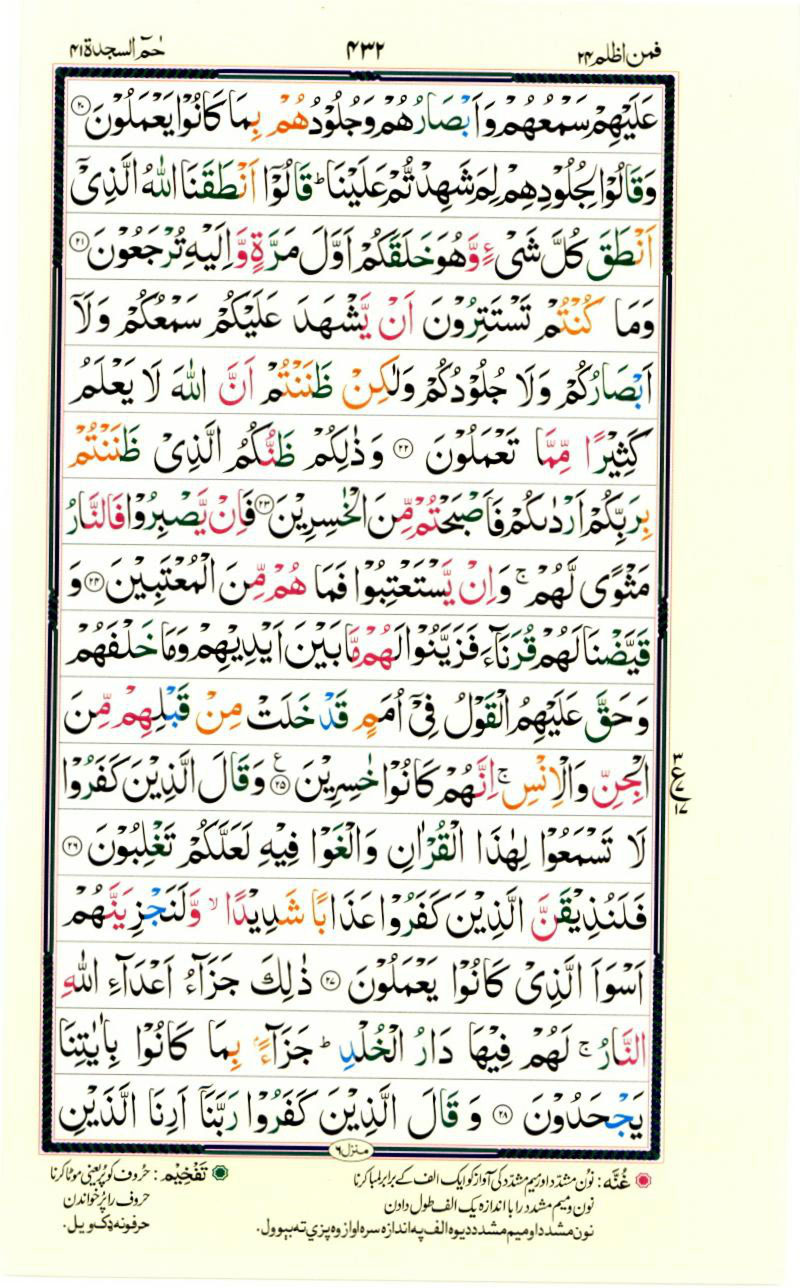 فمن اظلم ۲۴
۴۳۲
حٰمٓ السجدة ۴۱
عَلَيْهِمْ سَمْعُهُمْ وَاَبْصَارُهُمْ وَجُلُوْدُهُمْ بِمَا كَانُوْا يَعْمَلُوْنَ ۝۲۰
وَقَالُوْا لِجُلُوْدِهِمْ لِمَ شَهِدْتُّمْ عَلَيْنَا ؕ قَالُوْٓا اَنْطَقَنَا اللّٰهُ الَّذِىْٓ
اَنْطَقَ كُلَّ شَىْءٍ وَّهُوَ خَلَقَكُمْ اَوَّلَ مَرَّةٍ وَّاِلَيْهِ تُرْجَعُوْنَ ۝۲۱
وَمَا كُنْتُمْ تَسْتَتِرُوْنَ اَنْ يَّشْهَدَ عَلَيْكُمْ سَمْعُكُمْ وَلَاۤ
اَبْصَارُكُمْ وَلَا جُلُوْدُكُمْ وَلٰكِنْ ظَنَنْتُمْ اَنَّ اللّٰهَ لَا يَعْلَمُ
كَثِيْرًا مِّمَّا تَعْمَلُوْنَ ۝۲۲ وَذٰلِكُمْ ظَنُّكُمُ الَّذِىْ ظَنَنْتُمْ
بِرَبِّكُمْ اَرْدٰىكُمْ فَاَصْبَحْتُمْ مِّنَ الْخٰسِرِيْنَ ۝۲۳ فَاِنْ يَّصْبِرُوْا فَالنَّارُ
مَثْوًى لَّهُمْ ۚ وَاِنْ يَّسْتَعْتِبُوْا فَمَا هُمْ مِّنَ الْمُعْتَبِيْنَ ۝۲۴ وَ
قَيَّضْنَا لَهُمْ قُرَنَآءَ فَزَيَّنُوْا لَهُمْ مَّا بَيْنَ اَيْدِيْهِمْ وَمَا خَلْفَهُمْ
وَحَقَّ عَلَيْهِمُ الْقَوْلُ فِىْٓ اُمَمٍ قَدْ خَلَتْ مِنْ قَبْلِهِمْ مِّنَ
الْجِنِّ وَالْاِنْسِ ۚ اِنَّهُمْ كَانُوْا خٰسِرِيْنَ ۝۲۵ ع وَقَالَ الَّذِيْنَ كَفَرُوْا
۳
ع ۷
۱۷
لَا تَسْمَعُوْا لِهٰذَا الْقُرْاٰنِ وَالْغَوْا فِيْهِ لَعَلَّكُمْ تَغْلِبُوْنَ ۝۲۶
فَلَنُذِيْقَنَّ الَّذِيْنَ كَفَرُوْا عَذَابًا شَدِيْدًا ۙ وَّلَنَجْزِيَنَّهُمْ
اَسْوَاَ الَّذِىْ كَانُوْا يَعْمَلُوْنَ ۝۲۷ ذٰلِكَ جَزَآءُ اَعْدَآءِ اللّٰهِ
النَّارُ ۚ لَهُمْ فِيْهَا دَارُ الْخُلْدِ ؕ جَزَآءًۢ بِمَا كَانُوْا بِاٰيٰتِنَا
يَجْحَدُوْنَ ۝۲۸ وَ قَالَ الَّذِيْنَ كَفَرُوْا رَبَّنَاۤ اَرِنَا الَّذَيْنِ
منزل ۶
غُنَّه: نوُن مشدّد اور میم مشدّد کی آواز کو ایک الف کے برابر لمبا کرنا
نون و میم مشدد را با اندازه یک الف طول دادن
نون مشدد او میم مشدد دیوه الف په اندازه سره اواز وه پزي ته بېوول.
تَفْخِيْم: حُروف کو پُر یعنی موٹا کرنا
حروف را پر خواندن
حرفونه ډک ویل.